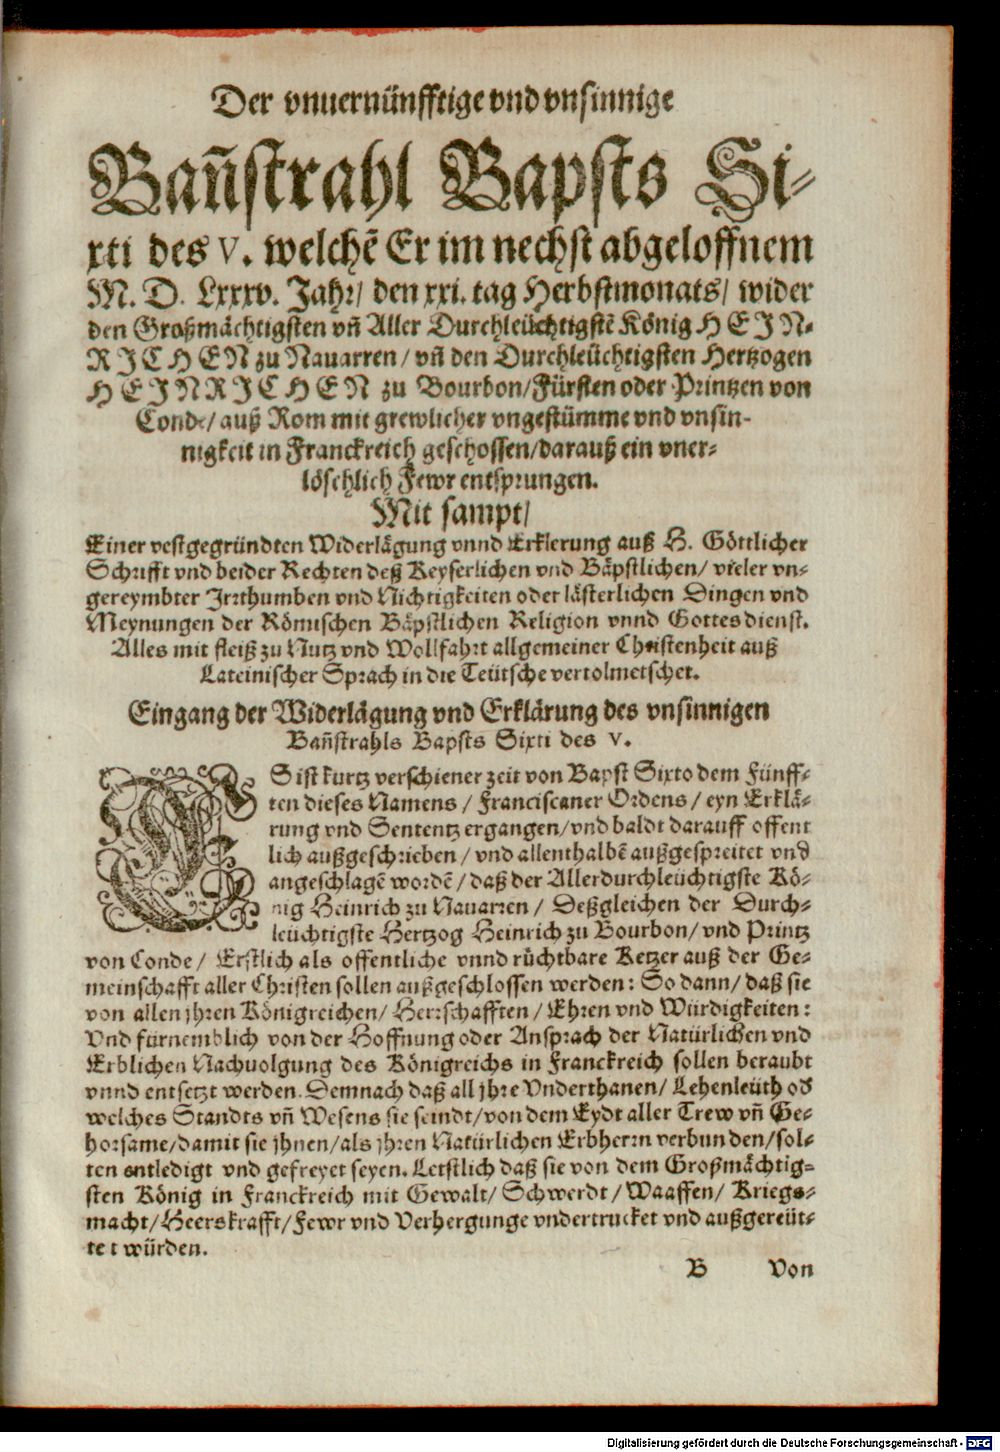 Der vnuernünfftige vnd vnsinnige
Bañstrahl Bapsts Si-
xti des V. welchẽ Er im nechst abgeloffnem
M. D. Lxxxv. Jahr/ den xxi. tag Herbstmonats/ wider
den Großmächtigsten vñ Aller Durchleüchtigstẽ König HEJN-
RJCHEN zu Nauarren/ vñ den Durchleüchtigsten Hertzogen
HEJNRJCHEN zu Bourbon/Fürsten oder Printzen von
Conde/ auß Rom mit grewlicher vngestümme vnd vnsin-
nigkeit in Franckreich geschossen/darauß ein vner-
löschlich Fewr entsprungen.
Mit sampt/
Einer vestgegründten Widerlägung vnnd Erklerung auß H. Göttlicher
Schrifft vnd beider Rechten deß Keyserlichen vnd Bäpstlichen/ vieler vn-
gereymbter Jrrthumben vnd Nichtigkeiten oder lästerlichen Dingen vnd
Meynungen der Römischen Bäpstlichen Religion vnnd Gottesdienst.
Alles mit fleiß zu Nutz vnd Wollfahrt allgemeiner Christenheit auß
Lateinischer Sprach in die Teütsche vertolmetschet.
Eingang der Widerlägung vnd Erklärung des vnsinnigen
Bañstrahls Bapsts Sixti des V.
ES ist kurtz verschiener zeit von Bapst Sixto dem Fünff-
ten dieses Namens / Franciscaner Ordens / eyn Erklä-
rung vnd Sententz ergangen/vnd baldt darauff offent
lich außgeschrieben / vnd allenthalbẽ außgespreitet vnd
angeschlagẽ wordẽ / daß der Allerdurchleüchtigste Kö-
nig Heinrich zu Nauarren / Deßgleichen der Durch-
leüchtigste Hertzog Heinrich zu Bourbon/ vnd Printz
von Conde/ Erstlich als offentliche vnnd rüchtbare Ketzer auß der Ge-
meinschafft aller Christen sollen außgeschlossen werden: So dann/ daß sie
von allen jhren Königreichen/ Herrschafften / Ehren vnd Würdigkeiten:
Vnd fürnemblich von der Hoffnung oder Ansprach der Natürlichen vnd
Erblichen Nachuolgung des Königreichs in Franckreich sollen beraubt
vnnd entsetzt werden. Demnach daß all jhre Vnderthanen/ Lehenleüth od
welches Standts vñ Wesens sie seindt/von dem Eydt aller Trew vñ Ge-
horsame/damit sie jhnen/als jhren Natürlichen Erbherrn verbunden/sol-
ten entledigt vnd gefreyet seyen. Letstlich daß sie von dem Großmächtig-
sten König in Franckreich mit Gewalt/ Schwerdt / Waaffen/ Kriegs-
macht/Heerskrafft/Fewr vnd Verhergunge vndertrucket vnd außgereüt-
tet würden.
B Von
Digitalisierung gefördert durch die Deutsche Forschungsgemeinschaft - DFG